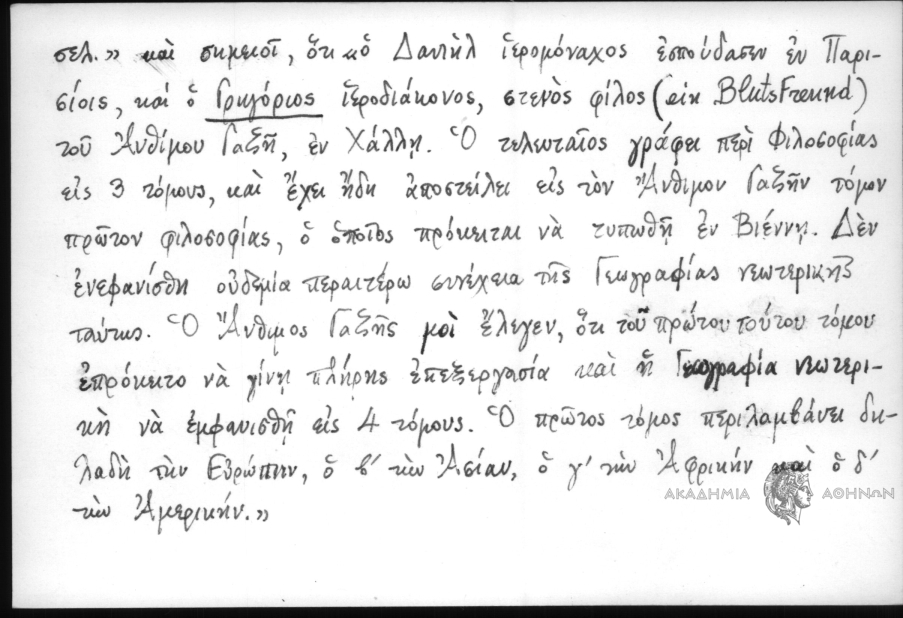 σελ.» καὶ σημειοῖ, ὅτι «ὁ Δανιὴλ ἱερομόναχος ἐσπούδασεν ἐν Παρι-
σίοις, καὶ ὁ Γρηγόριος ἱεροδιάκονος, στενὸς φίλος (ein BlutsFreund)
τοῦ Ἀνθίμου Γαζῆ, ἐν Χάλλῃ. Ὁ τελευταῖος γράφει περὶ Φιλοσοφίας
εἰς 3 τόμους, καὶ ἔχει ἤδη ἀποστείλει εἰς τὸν Ἄνθιμον Γαζῆν τόμον
πρῶτον φιλοσοφίας, ὁ ὁποῖος πρόκειται νὰ τυπωθῇ ἐν Βιέννῃ. Δὲν
ἐνεφανίσθη οὐδεμία περαιτέρω συνέχεια τῆς Γεωγραφίας νεωτερικῆς
ταύτης. Ὁ Ἄνθιμος Γαζῆς μοὶ ἔλεγεν, ὅτι τοῦ πρώτου τούτου τόμου
ἐπρόκειτο νὰ γίνῃ πλήρης ἐπεξεργασία καὶ ἡ Γεωγραφία νεωτερι-
κὴ νὰ ἐμφανισθῇ εἰς 4 τόμους. Ὁ πρῶτος τόμος περιλαμβάνει δη-
λαδὴ τὴν Εὐρώπην, ὁ β΄ τὴν Ἀσίαν, ὁ γ΄ τὴν Ἀφρικὴν καὶ ὁ δ΄
τὴν Ἀμερικήν.»
ΑΚΑΔΗΜΙΑ ΑΘΗΝΩΝ